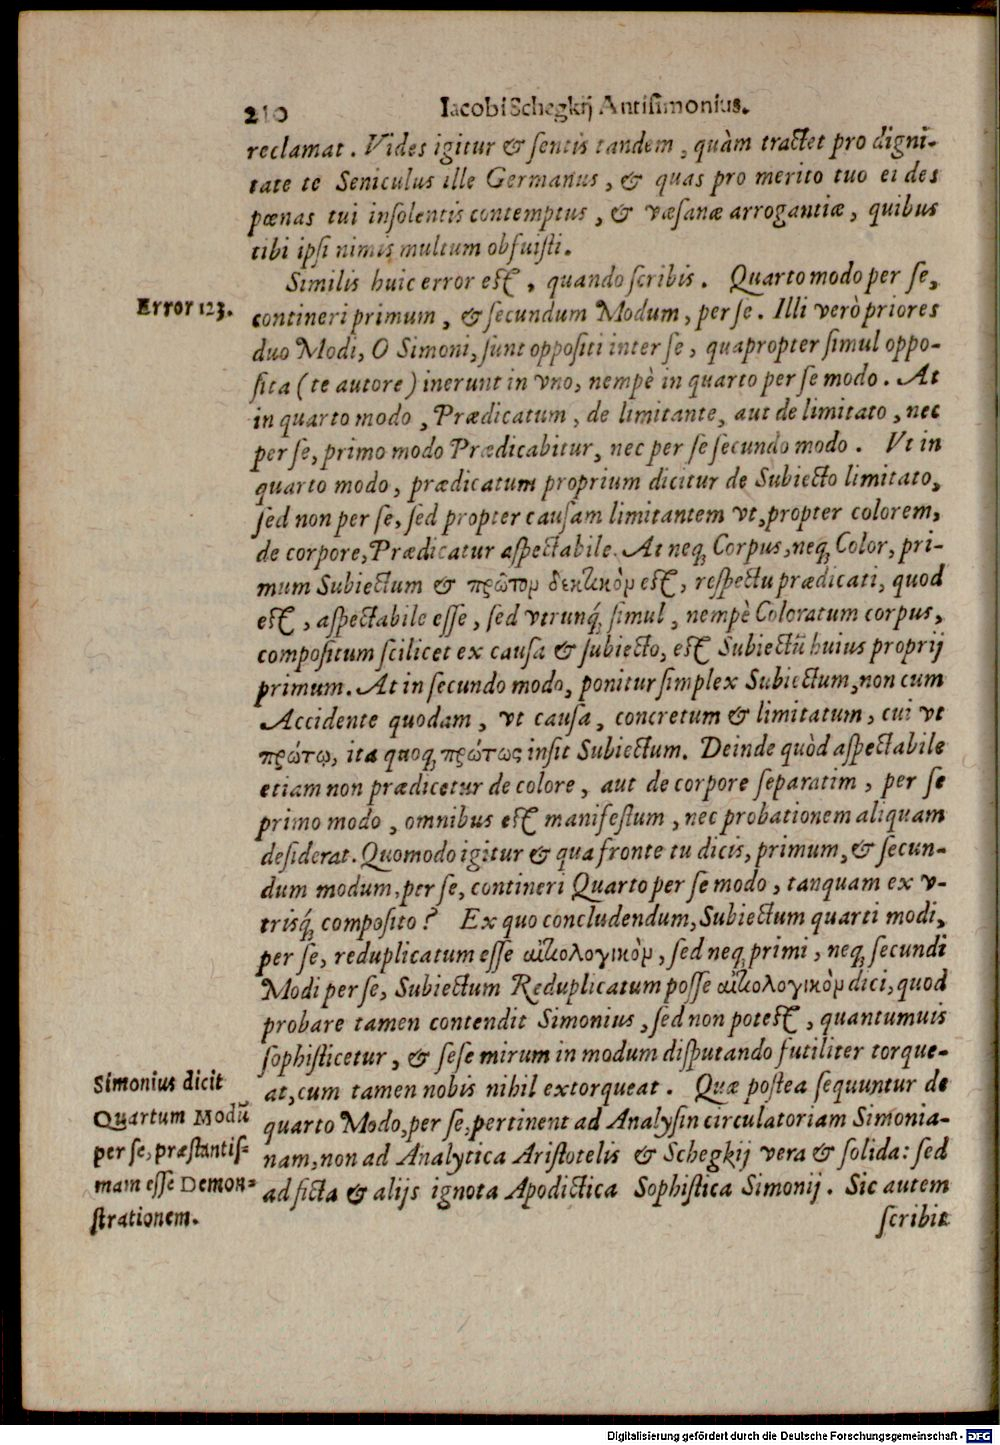 210 Iacobi Schegkij Antisimonius.
reclamat. Vides igitur & sentis tandem, quàm tractet pro digni-
tate te Seniculus ille Germanus, & quas pro merito tuo ei des
pœnas tui insolentis contemptus, & væsanæ arrogantiæ, quibus
tibi ipsi nimis multum obfuisti.
Similis huic error est, quando scribis. Quarto modo per se,
Error 123.
contineri primum, & secundum Modum, per se. Illi verò priores
duo Modi, O Simoni, sunt oppositi inter se, quapropter simul oppo-
sita (te autore) inerunt in vno, nempè in quarto per se modo. At
in quarto modo, Prædicatum, de limitante, aut de limitato, nec
per se, primo modo Prædicabitur, nec per se secundo modo. Vt in
quarto modo, prædicatum proprium dicitur de Subiecto limitato,
sed non per se, sed propter causam limitantem vt, propter colorem,
de corpore, Prædicatur aspectabile. At neq; Corpus, neq; Color, pri-
mum Subiectum & πρῶτον δεκτικὸν est, respectu prædicati, quod
est, aspectabile esse, sed vtrunq́; simul, nempè Coloratum corpus,
compositum scilicet ex causa & subiecto, est Subiectũ huius proprij
primum. At in secundo modo, ponitur simplex Subiectum, non cum
Accidente quodam, vt causa, concretum & limitatum, cui vt
πρώτῳ, ita quoq; πρώτως insit Subiectum. Deinde quòd aspectabile
etiam non prædicetur de colore, aut de corpore separatim, per se
primo modo, omnibus est manifestum, nec probationem aliquam
desiderat. Quomodo igitur & qua fronte tu dicis, primum, & secun-
dum modum, per se, contineri Quarto per se modo, tanquam ex v-
trisq́; composito? Ex quo concludendum, Subiectum quarti modi,
per se, reduplicatum esse αἰτιολογικὸν, sed neq; primi, neq; secundi
Modi per se, Subiectum Reduplicatum posse αἰτιολογικὸν dici, quod
probare tamen contendit Simonius, sed non potest, quantumuis
sophisticetur, & sese mirum in modum disputando futiliter torque-
at, cum tamen nobis nihil extorqueat. Quæ postea sequuntur de
quarto Modo, per se, pertinent ad Analysin circulatoriam Simonia-
nam, non ad Analytica Aristotelis & Schegkij vera & solida: sed
ad ficta & alijs ignota Apodictica Sophistica Simonij. Sic autem
scribit
Simonius dicit
Quartum Modũ
per se, præstantis-
mam esse Demon-
strationem.
Digitalisierung gefördert durch die Deutsche Forschungsgemeinschaft - DFG